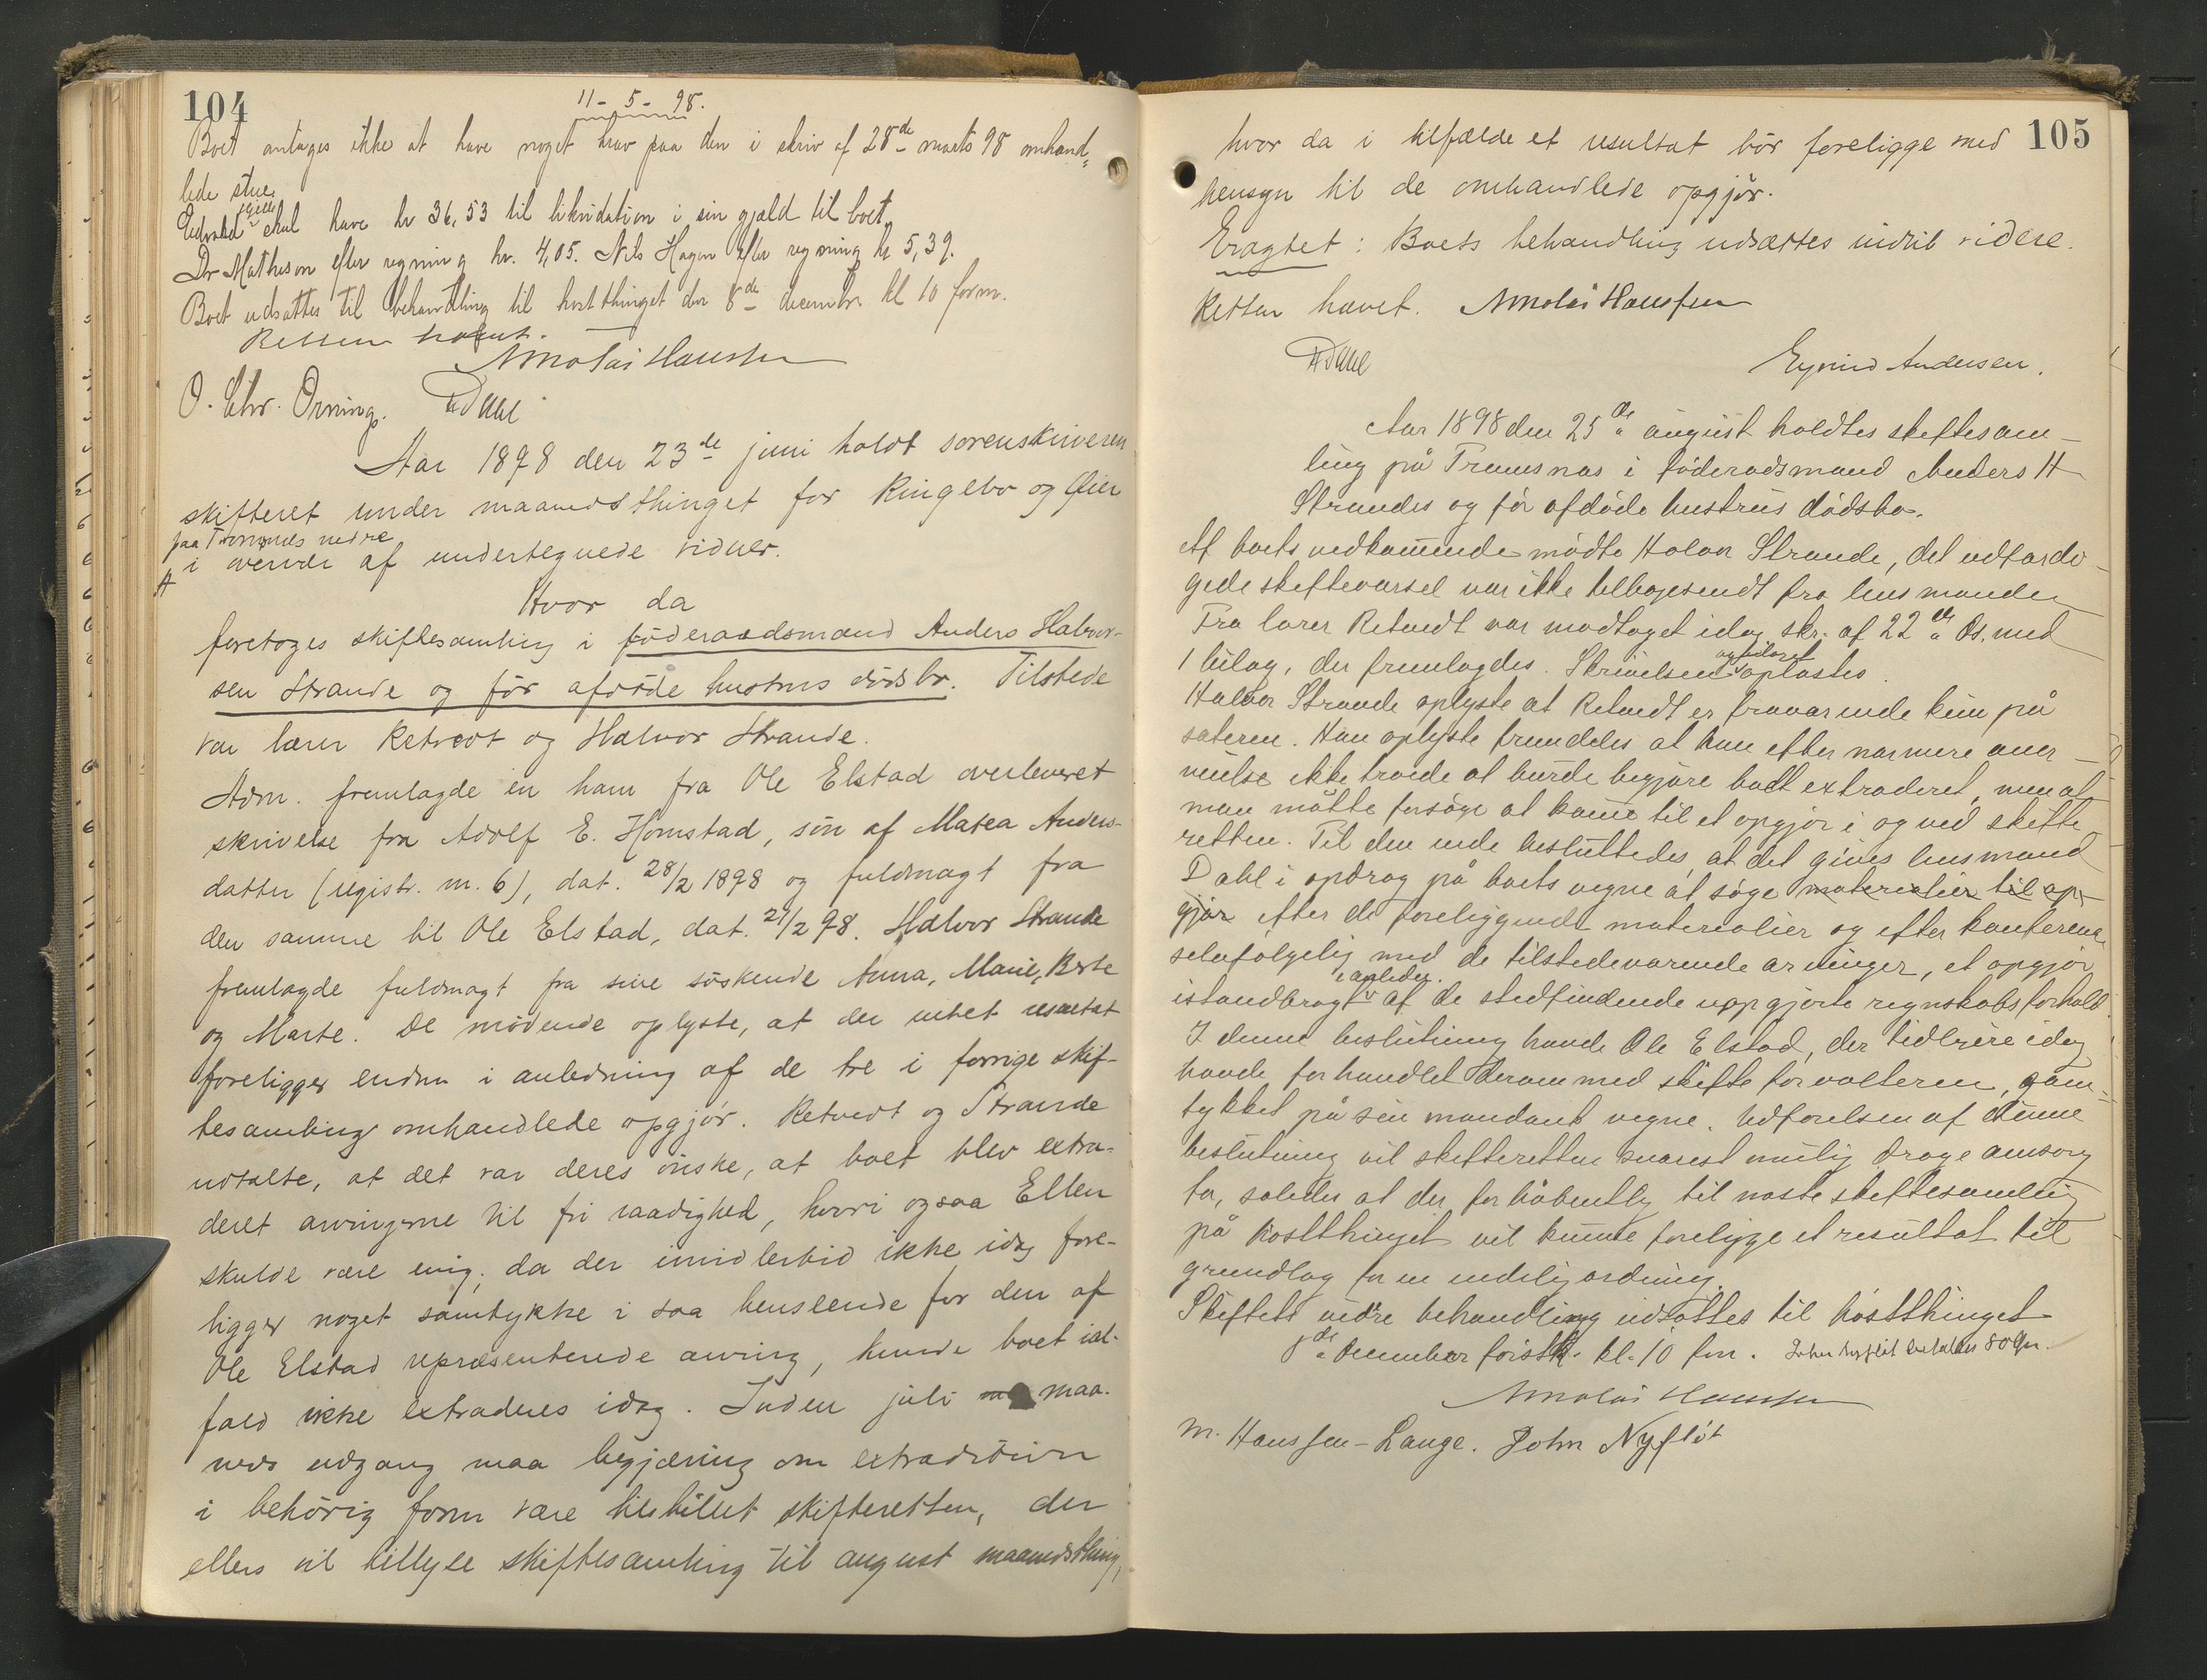 104
11 - 5 - 98.
Boet antages ikke at have noget krav paa den i skriv af 28de marts 98 omhand-
lede stue.
Edvard skal have kr 36,53 til likvidation i sin gjæld til boet.
Dr Matheson efter regning kr. 4,05. Nils Hagen efter regning kr 5,39.
Boet udsættes til behandling til høstthinget den 8de decembr. kl 10 form.
Retten hævet.
Nikolai Hanssen
O. Chr. Orning. Dahl
Aar 1898 den 23de juni holdt sorenskriveren
skifteret under maanedsthinget for Ringebo og Øier
paa Tromsnæs nedre
i overvær af undertegnede vidner.
Hvor da
foretoges skiftesamling i föderaadsmand Anders Halvor-
sen Strande og før afdøde hustrus dødsbo. Tilstede
var lærer Retvedt og Halvor Strande.
Adm. fremlagde en ham fra Ole Elstad overleveret
skrivelse fra Adolf E. Homstad, søn af Matea Anders-
datter (registr. m. 6), dat. 28/2 1898 og fuldmagt fra
den samme til Ole Elstad, dat. 21/2 98. Halvor Strande
fremlagde fuldmagt fra sine søskende Anna, Marie, Berte
og Marte. De mødende oplyste, at der intet resultat
foreligger endnu i anledning af de tre i forrige skif-
tesamling omhandlede opgjør. Retvedt og Strande
udtalte, at det var deres ønske, at boet blev extra-
deret arvingerne til fri raadighed, hvori ogsaa Ellen
skulde være enig; da der imidlertid ikke idag fore-
ligger noget samtykke i saa henseende for den af
Ole Elstad repræsenterede arving, kunde boet ial-
fald ikke extraderes idag. Inden juli maa-
neds udgang maa begjæring om extradition
i behørig form være tilstillet skifteretten, der
ellers vil tillyse skiftesamling til august maanedsthing,
105
hvor da i tilfælde et resultat bör foreligge med
hensyn til de omhandlede opgjør.
Eragtet: Boets behandling udsættes indtil videre.
Retten hævet. Nikolai Hanssen
Dahl
Eyvind Andersen.
Aar 1898 den 25de august holdtes skiftesam-
ling på Tromsnæs i föderadsmand Anders H
Strandes og før afdøde hustrus dødsbo.
Af boets vedkommende mødte Halvor Strande, det udfærdi-
gede skiftevarsel var ikke tilbagesendt fra lensmanden
Fra lærer Retvedt var modtaget idag skr. af 22de ds. med
1 bilag, der fremlagdes. Skrivelsen og bilaget oplæstes.
Halvor Strande oplyste at Retvedt er fraværende kun på
sæteren. Han oplyste fremdeles at han efter nærmere over-
veielse ikke troede at burde begjære boet extraderet, men at
man måtte forsøge at komme til et opgjør i og ved skifte
retten. Til den ende besluttedes, at det gives lensmand
Dahl i opdrag på boets vegne at søge materialier til op-
gjør efter de foreliggende materialier og efter konferance
selvfølgelig med de tilstedeværende arvinger, et opgjør
istandbragt af de stedfindende uopgjorte regnskabsforhold.
I denne beslutning havde Ole Elstad, der tidligere idag
havde forhandlet derom med skifteforvalteren, sam-
tykket på sin mandants vegne. Udførelsen af denne
beslutning vil skifteretten snarest mulig drage omsorg
for, således at der forhåbentlig til næste skiftesamling
på høstthinget vil kunne foreligge et resultat til
grundlag for en endelig ordning.
Skiftets videre behandling udsættes til høstthinget
8de december förstk. kl. 10 fm. John Nyflöt betaltes 80 øre.
Nikolai Hanssen
M. Hanssen-Lange. John Nyflöt